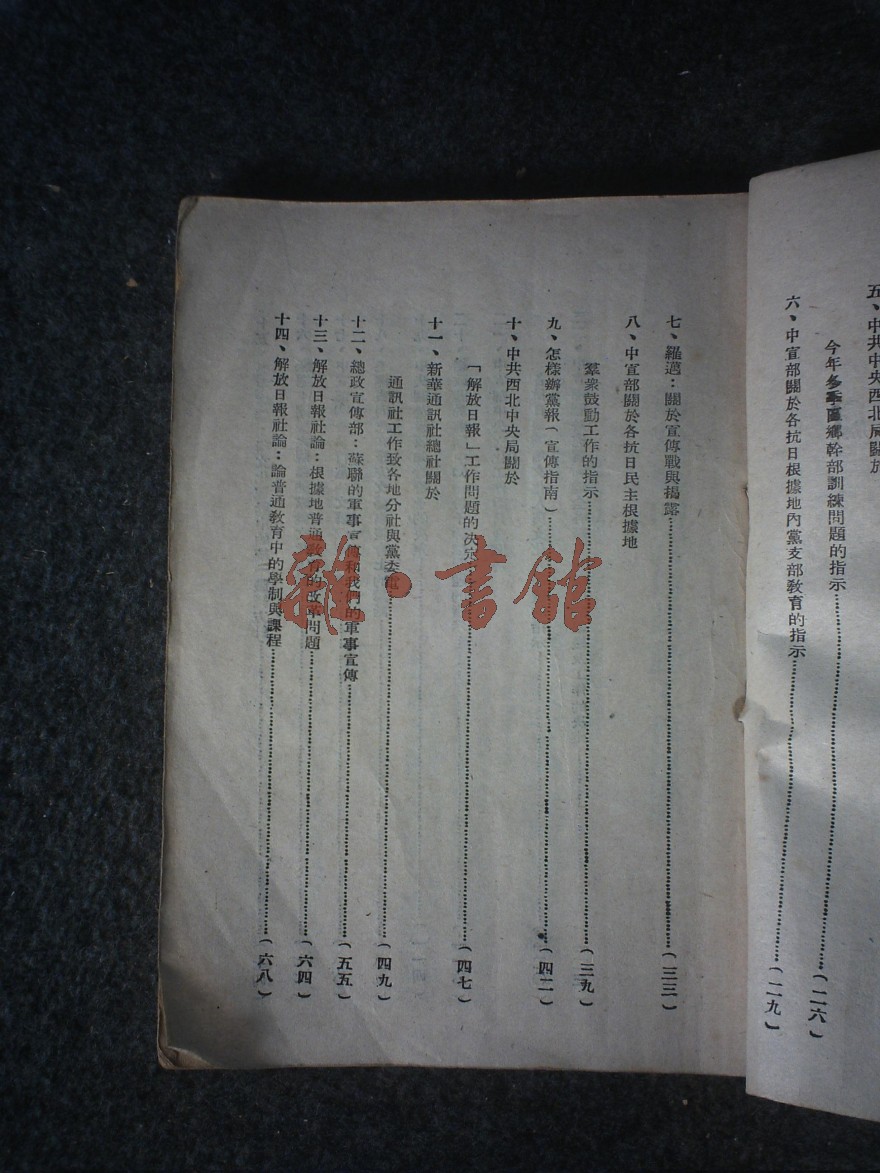 五、中共中央西北局關於
今年冬季區鄉幹部訓練問題的指示……(二六)
六、中宣部關於各抗日根據地內黨支部教育的指示……(二九)
七、羅邁：關於宣傳戰與揭露……(三三)
八、中宣部關於各抗日民主根據地
羣衆鼓動工作的指示……(三九)
九、怎樣辦黨報(宣傳指南)……(四二)
十、中共西北中央局關於
「解放日報」工作問題的決定……(四七)
十一、新華通訊社總社關於
通訊社工作致各地分社與黨委電……(四九)
十二、總政宣傳部：蘇聯的軍事宣傳和我們的軍事宣傳……(五五)
十三、解放日報社論：根據地普通教育的改革問題……(六四)
十四、解放日報社論：論普通教育中的學制與課程……(六八)
雜·書館